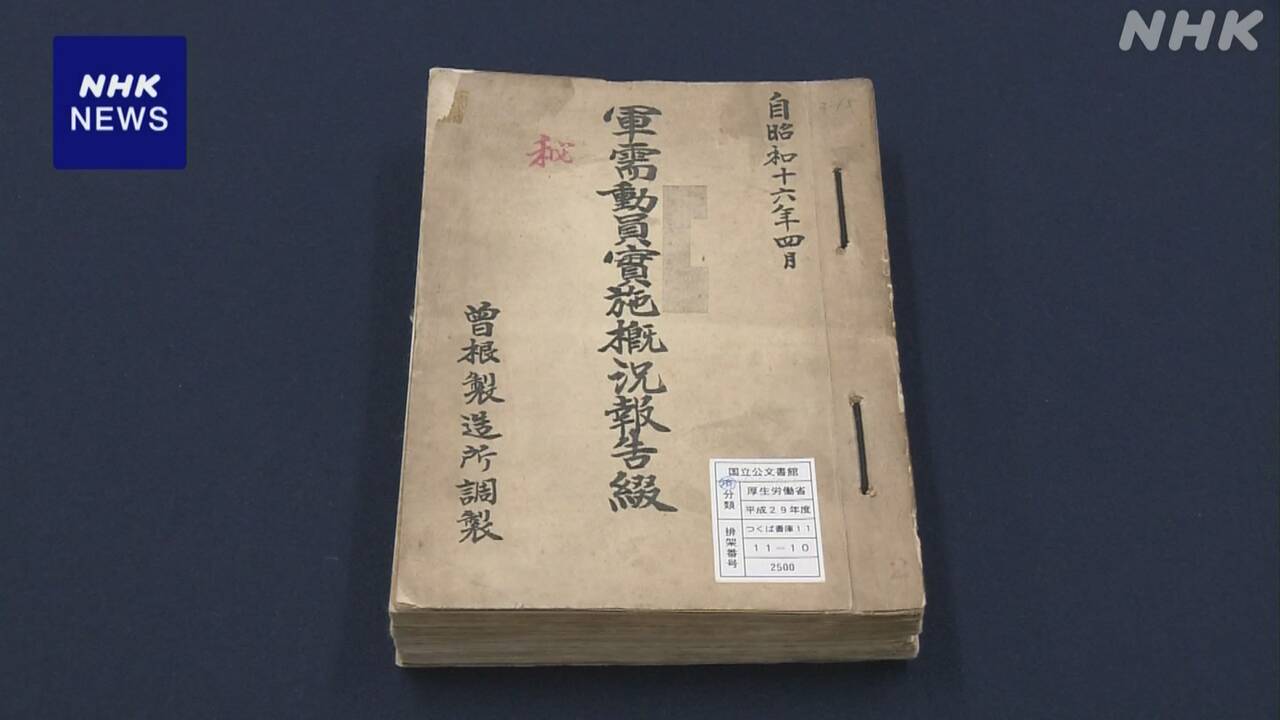 NHK
NHK
NEWS
自昭和十六年四月
軍需動員實施概況報告綴
秘
曽根製造所調製
国立公文書館
分類
厚生労働省
平成29年度
排架番号
つくば書庫11
11-10
2500
2